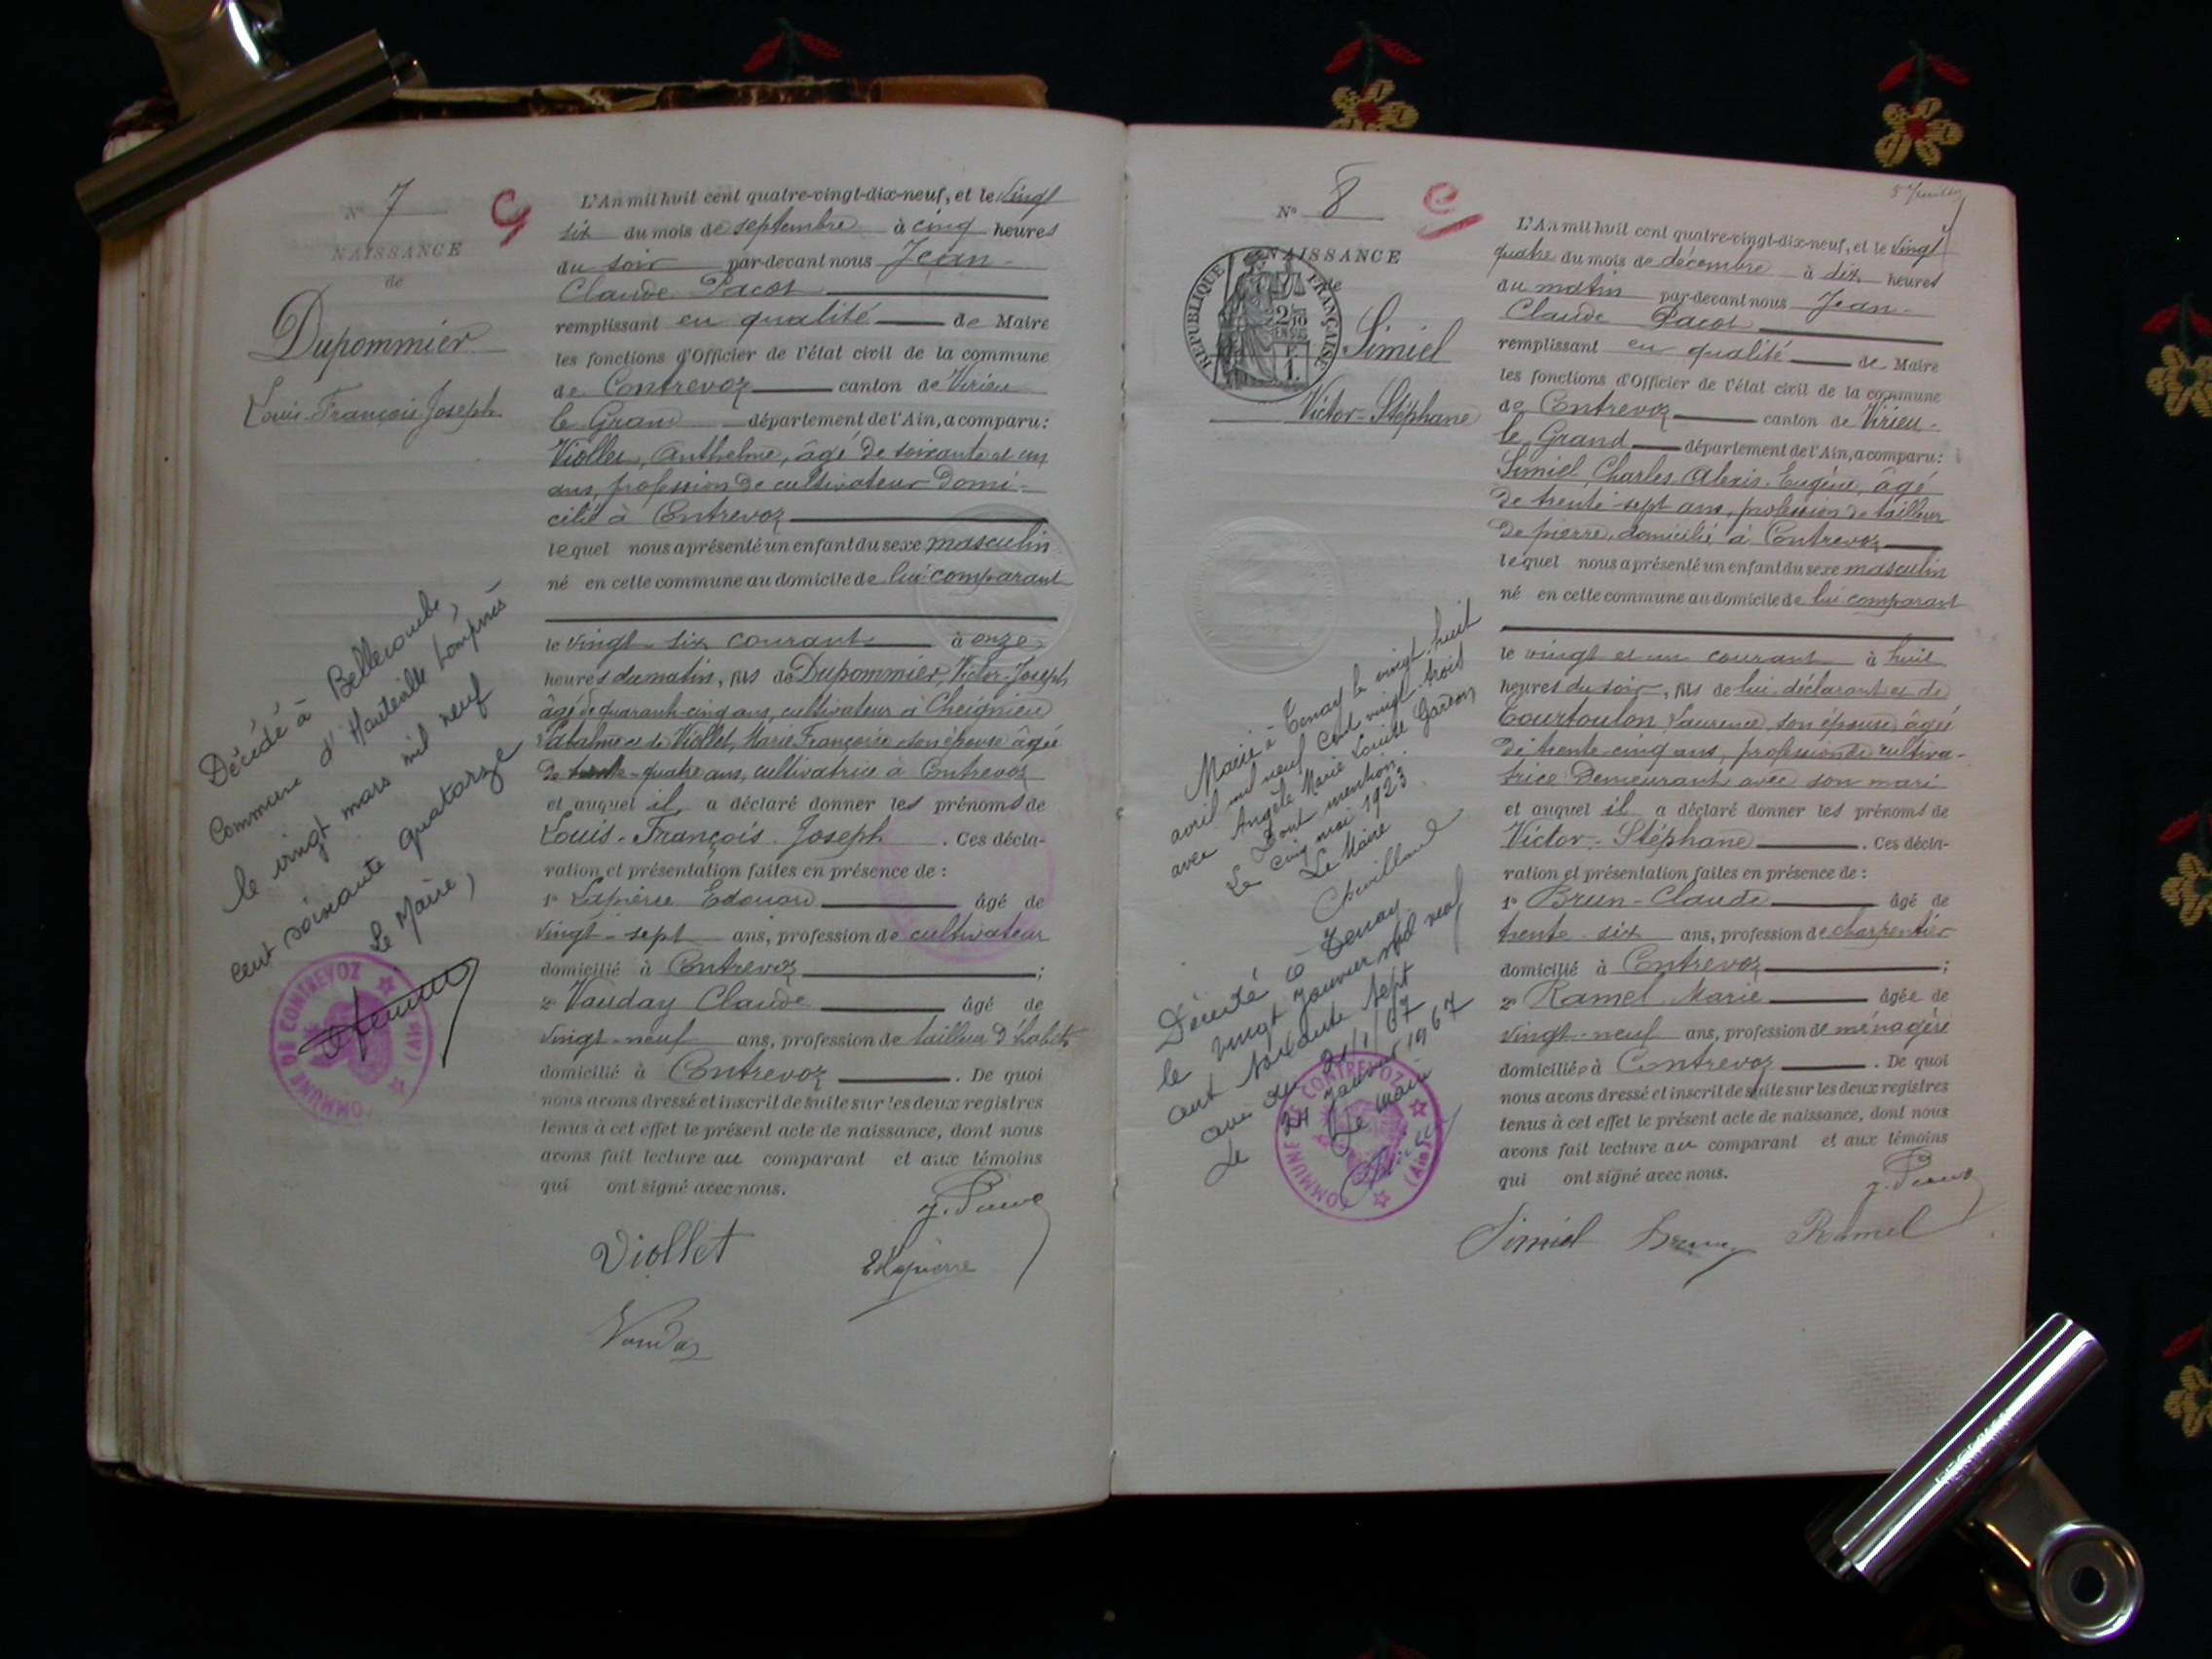 N° 7
NAISSANCE
de
Dupommier
Louis-François Joseph.
Décédé à Bellecombe,
Commune d'Hauteville Lompnes
le vingt mars mil neuf
cent soixante quatorze
Le Maire,
COMMUNE DE CONTREVOZ (AIN)
L'An mil huit cent quatre-vingt-dix-neuf, et le vingt
six du mois de septembre à cinq heures
du soir par-devant nous Jean-
Claude Pacot
remplissant en qualité de Maire
les fonctions d'Officier de l'état civil de la commune
de Contrevoz canton de Virieu
le Grand département de l'Ain, a comparu:
Viollet, Anthelme, âgé de soixante et un
ans, profession de cultivateur domi-
cilié à Contrevoz
lequel nous a présenté un enfant du sexe masculin
né en cette commune au domicile de lui comparant
le vingt-six courant à onze
heures du matin, fils de Dupommier, Victor-Joseph
âgé de quarante-cinq ans, cultivateur à Cheignieu
Labalme et de Viollet, Marie Françoise son épouse âgée
de trente-quatre ans, cultivatrice à Contrevoz
et auquel il a déclaré donner les prénoms de
Louis-François-Joseph. Ces décla-
ration et présentation faites en présence de :
1° Lapierre Edouard âgé de
vingt-sept ans, profession de cultivateur
domicilié à Contrevoz ;
2° Vauday Claude âgé de
vingt-neuf ans, profession de tailleur d'habits
domicilié à Contrevoz. De quoi
nous avons dressé et inscrit de suite sur les deux registres
tenus à cet effet le présent acte de naissance, dont nous
avons fait lecture au comparant et aux témoins
qui ont signé avec nous.
Viollet
E Lapierre
Vauday
N° 8
NAISSANCE
de
REPUBLIQUE FRANÇAISE
Simiel
Victor-Stéphane
Marié à Tenay le vingt-huit
avril mil neuf cent vingt-trois
avec Angèle Marie Louise
Dont mention
Le cinq mai 1923
Le Maire
Décédé à Tenay
le vingt janvier mil neuf
cent soixante sept
avis du 21/1/67
Le 24 janvier 1967
Le maire
COMMUNE DE CONTREVOZ (Ain)
L'An mil huit cent quatre-vingt-dix-neuf, et le vingt
quatre du mois de décembre à dix heures
du matin par-devant nous Jean-
Claude Pacot
remplissant en qualité de Maire
les fonctions d'Officier de l'état civil de la commune
de Contrevoz canton de Virieu-
le Grand département de l'Ain, a comparu:
Simiel, Charles, Alexis-Eugène, âgé
de trente-sept ans, profession de tailleur
de pierre, domicilié à Contrevoz
lequel nous a présenté un enfant du sexe masculin
né en cette commune au domicile de lui comparant
le vingt et un courant à huit
heures du soir, fils de lui déclarant et de
Tourtoulon Laurence, son épouse, âgée
de trente-cinq ans, profession de cultiva-
trice demeurant avec son mari
et auquel il a déclaré donner les prénoms de
Victor-Stéphane. Ces décla-
ration et présentation faites en présence de :
1° Brun-Claude âgé de
trente-six ans, profession de charpentier
domicilié à Contrevoz ;
2° Ramel Marie âgée de
vingt-neuf ans, profession de ménagère
domiciliée à Contrevoz. De quoi
nous avons dressé et inscrit de suite sur les deux registres
tenus à cet effet le présent acte de naissance, dont nous
avons fait lecture au comparant et aux témoins
qui ont signé avec nous.
Simiel Brun Ramel